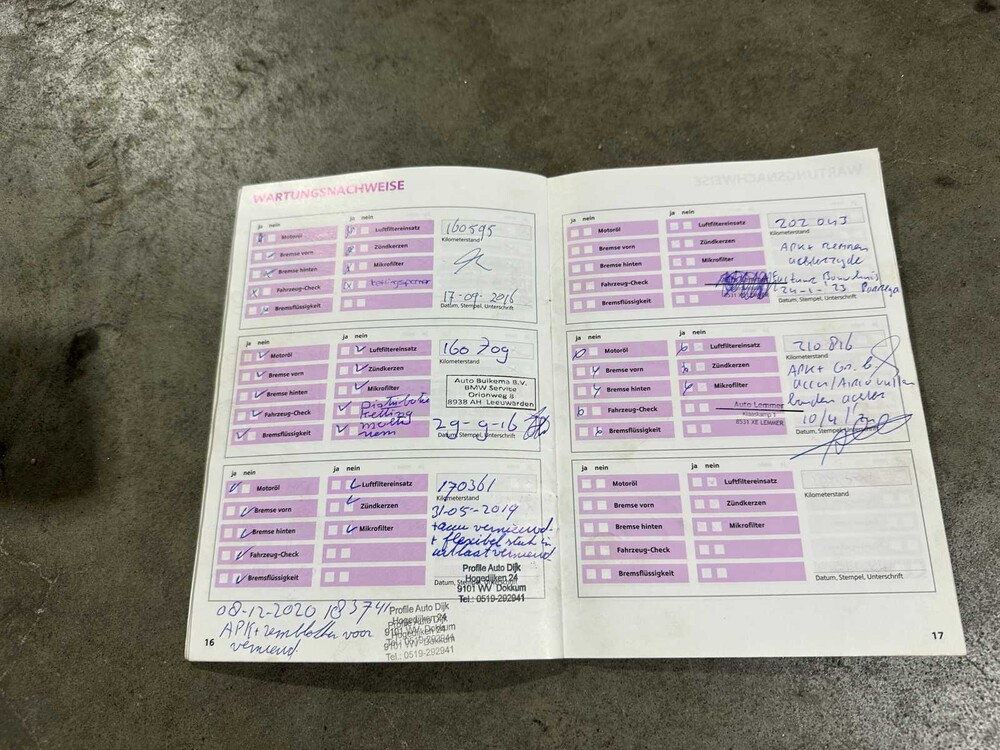 WARTUNGSNACHWEISE
ja nein
ja nein
Motoröl
Luftfiltereinsatz
160595
Kilometerstand
Bremse vorn
Zündkerzen
Bremse hinten
Mikrofilter
Fahrzeug-Check
17-09-2016
Bremsflüssigkeit
Datum, Stempel, Unterschrift
ja nein
ja nein
Motoröl
Luftfiltereinsatz
160709
Kilometerstand
Bremse vorn
Zündkerzen
Bremse hinten
Mikrofilter
Auto Buikema B.V.
BMW Service
Orionweg 8
8938 AH Leeuwarden
Fahrzeug-Check
Distributie
ketting
Bremsflüssigkeit
29-9-16
Datum, Stempel, Unterschrift
ja nein
ja nein
Motoröl
Luftfiltereinsatz
170361
Kilometerstand
Bremse vorn
Zündkerzen
31-05-2019
Bremse hinten
Mikrofilter
+ accu vernieuwd
+ flexibel stuk in
uitlaat vernieuwd
Fahrzeug-Check
Bremsflüssigkeit
Datum, Stempel, Unterschrift
Profile Auto Dijk
Hogedijken 24
9101 WV Dokkum
Tel.: 0519-292941
08-12-2020 183741
APK + remblokken voor
vernieuwd
Profile Auto Dijk
Hogedijken 24
9101 WV Dokkum
Tel.: 0519-292941
16
ja nein
ja nein
Motoröl
Luftfiltereinsatz
202043
Kilometerstand
Bremse vorn
Zündkerzen
APK + remmen
achterzijde
Bremse hinten
Mikrofilter
Fahrzeug-Check
24-1-23
Bremsflüssigkeit
Datum, Stempel, Unterschrift
ja nein
ja nein
Motoröl
Luftfiltereinsatz
210816
Kilometerstand
Bremse vorn
Zündkerzen
APK +
Bremse hinten
Mikrofilter
banden achter
Fahrzeug-Check
Auto Lemmer
8531 XE LEMMER
10/4/
Bremsflüssigkeit
Datum, Stempel, Unterschrift
ja nein
ja nein
Motoröl
Luftfiltereinsatz
Kilometerstand
Bremse vorn
Zündkerzen
Bremse hinten
Mikrofilter
Fahrzeug-Check
Bremsflüssigkeit
Datum, Stempel, Unterschrift
17